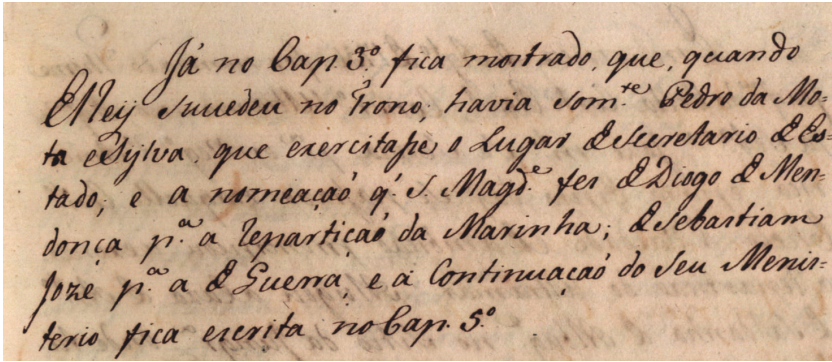 Já no Cap. 3º fica mostrado, que, quando
ElRey succedeu no Trono, havia som.te Pedro da Mo-
ta e Sylva, que exercitasse o Lugar de Secretario de Es-
tado; e a nomeaçaõ q' S. Magd.e fes de Diogo de Men-
donça p.a a repartiçaõ da Marinha; de Sebastiam
Jozé p.a a de Guerra, e a Continuaçaõ do seu Menis-
terio fica escrita no Cap. 5º